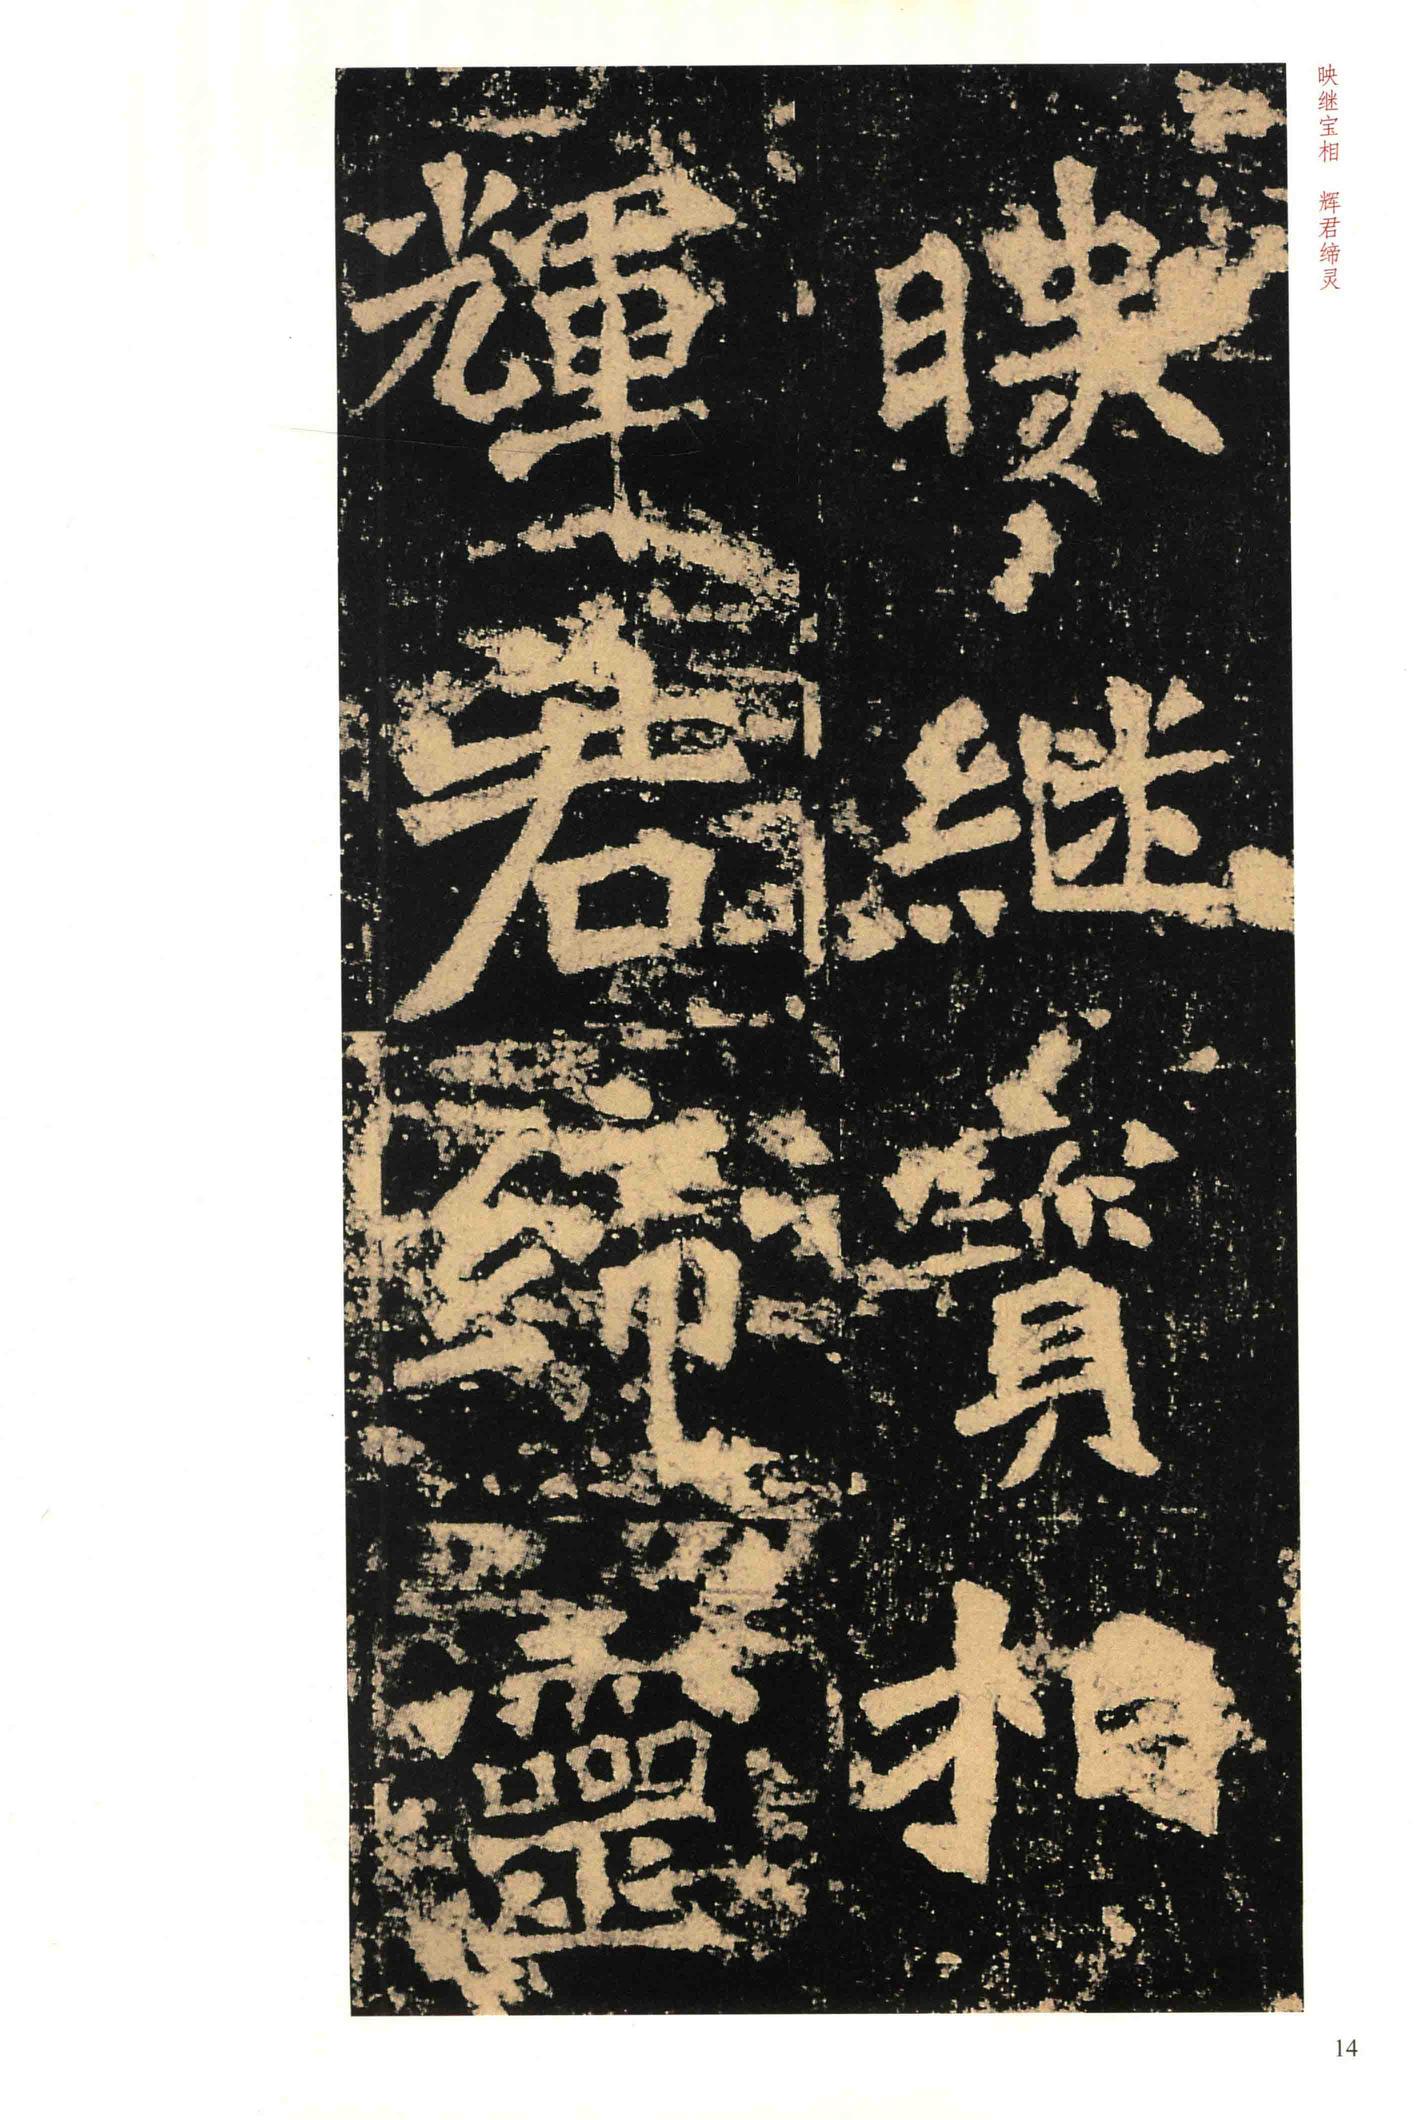 映继宝相　辉君缔灵
映继寳相
輝君締靈
14